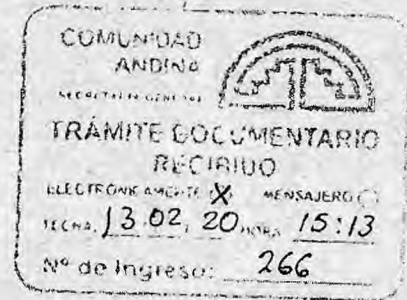 COMUNIDAD
ANDINA
SECRETARIA GENERAL
TRÁMITE DOCUMENTARIO
RECIBIDO
ELECTRONICAMENTE (X) MENSAJERO ( )
FECHA: 13.02.20 HORA: 15:13
Nº de Ingreso: 266